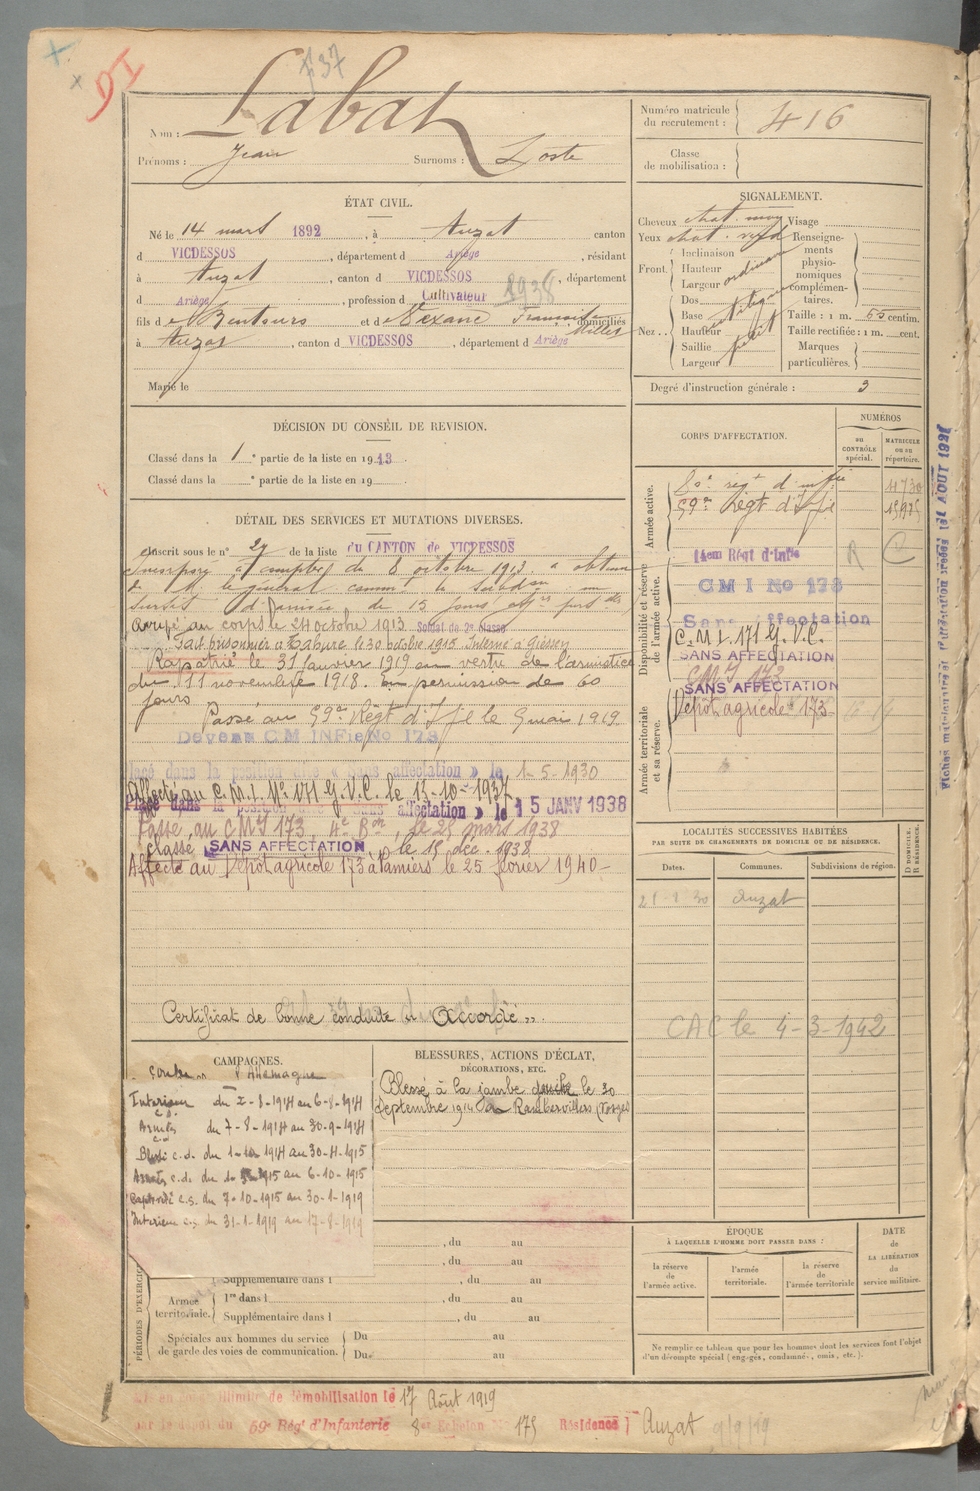 DI
737
Nom : Labat
Prénoms : Jean Surnoms : Loste
Numéro matricule du recrutement : 416
Classe de mobilisation :
ÉTAT CIVIL.
Né le 14 mars 1892, à Auzat canton
d VICDESSOS, département d Ariège, résidant
à Auzat, canton d VICDESSOS, département
d Ariège, profession d Cultivateur 1938
fils de Bentours et de Dexane Françoise domiciliés
à Auzat, canton d VICDESSOS, département d Ariège
Marié le
SIGNALEMENT.
Cheveux chat. moy Visage
Yeux chat. Renseignements physionomiques complémentaires.
Front Inclinaison
Hauteur ordinaire
Largeur
Nez Dos
Base
Hauteur
Saillie petit
Largeur
Taille : 1 m. 65 centim.
Taille rectifiée : 1 m. cent.
Marques particulières.
Degré d'instruction générale : 3
DÉCISION DU CONSEIL DE REVISION.
Classé dans la 1e partie de la liste en 1913.
Classé dans la e partie de la liste en 19
DÉTAIL DES SERVICES ET MUTATIONS DIVERSES.
Inscrit sous le n° 27 de la liste du CANTON de VICDESSOS
Incorporé à compter du 8 octobre 1913 a obtenu
de M. le général comm' la Subdon un
Sursis d'arrivée de 15 jours
Arrivé au corps le 24 octobre 1913. Soldat de 2e classe
Fait prisonnier à Tahure le 30 octobre 1915. Interné à Giessen
Rapatrié le 31 janvier 1919 en vertu de l'armistice
du 11 novembre 1918. En permission de 60
jours
Passé au 59e Régt d'Ifie le 9 mai 1919
Devenu C M INFie No 173
Placé dans la position dite « Sans affectation » le 1-5-1930
Affecté au C.M.I. N° 171 G.V.C. le 13-10-1937
Placé dans la position dite sans affectation » le 15 JANV 1938
Passé au CMI 173, 4e Bon, le 25 mars 1938
Classé SANS AFFECTATION le 15 déc. 1938
Affecté au Dépôt agricole 173 à Pamiers le 25 février 1940
Certificat de bonne conduite « Accordé ».
CORPS D'AFFECTATION.
NUMÉROS
au CONTRÔLE spécial.
MATRICULE ou au répertoire.
Armée active.
80e régt d'infie 4730
59e Régt d'Ifie 15975
Disponibilité et réserve de l'armée active.
14em Régt d'Infie R C
CMI No 173
Sans affectation
C.M.I. 171 G.V.C.
SANS AFFECTATION
CMI 173
SANS AFFECTATION
Dépôt agricole 173
Armée territoriale et sa réserve.
AOUT 1921
LOCALITÉS SUCCESSIVES HABITÉES
PAR SUITE DE CHANGEMENTS DE DOMICILE OU DE RÉSIDENCE.
Dates. Communes. Subdivisions de région. D DOMICILE. R RÉSIDENCE.
21-8-30 Auzat
CAC le 4-3-1942
CAMPAGNES.
Contre l'Allemagne
Intérieur du 2-8-1914 au 6-8-1914
Armées du 7-8-1914 au 30-9-1914
Blessé c.d. du 1-10-1914 au 30-11-1915
Armées c.d. du 1- 1915 au 6-10-1915
Captivité c.s. du 7-10-1915 au 30-1-1919
Intérieur c.s. du 31-1-1919 au 17-8-1919
BLESSURES, ACTIONS D'ÉCLAT,
DÉCORATIONS, ETC.
Blessé à la jambe droite le 30
Septembre 1914 à Rambervillers (Vosges)
PÉRIODES D'EXERCICE
, du au
, du au
Supplémentaire dans l , du au
Armée territoriale. 1re dans l , du au
Supplémentaire dans l , du au
Spéciales aux hommes du service de garde des voies de communication. Du au
Du au
ÉPOQUE
À LAQUELLE L'HOMME DOIT PASSER DANS :
la réserve de l'armée active.
l'armée territoriale.
la réserve de l'armée territoriale
DATE de LA LIBÉRATION du service militaire.
Ne remplir ce tableau que pour les hommes dont les services font l'objet
d'un décompte spécial (engagés, condamnés, omis, etc.).
Mis en congé illimité de démobilisation le 17 Août 1919
par le dépôt du 59e Rég' d'Infanterie 8e Echelon N° 175 Résidence Auzat 9/9/19